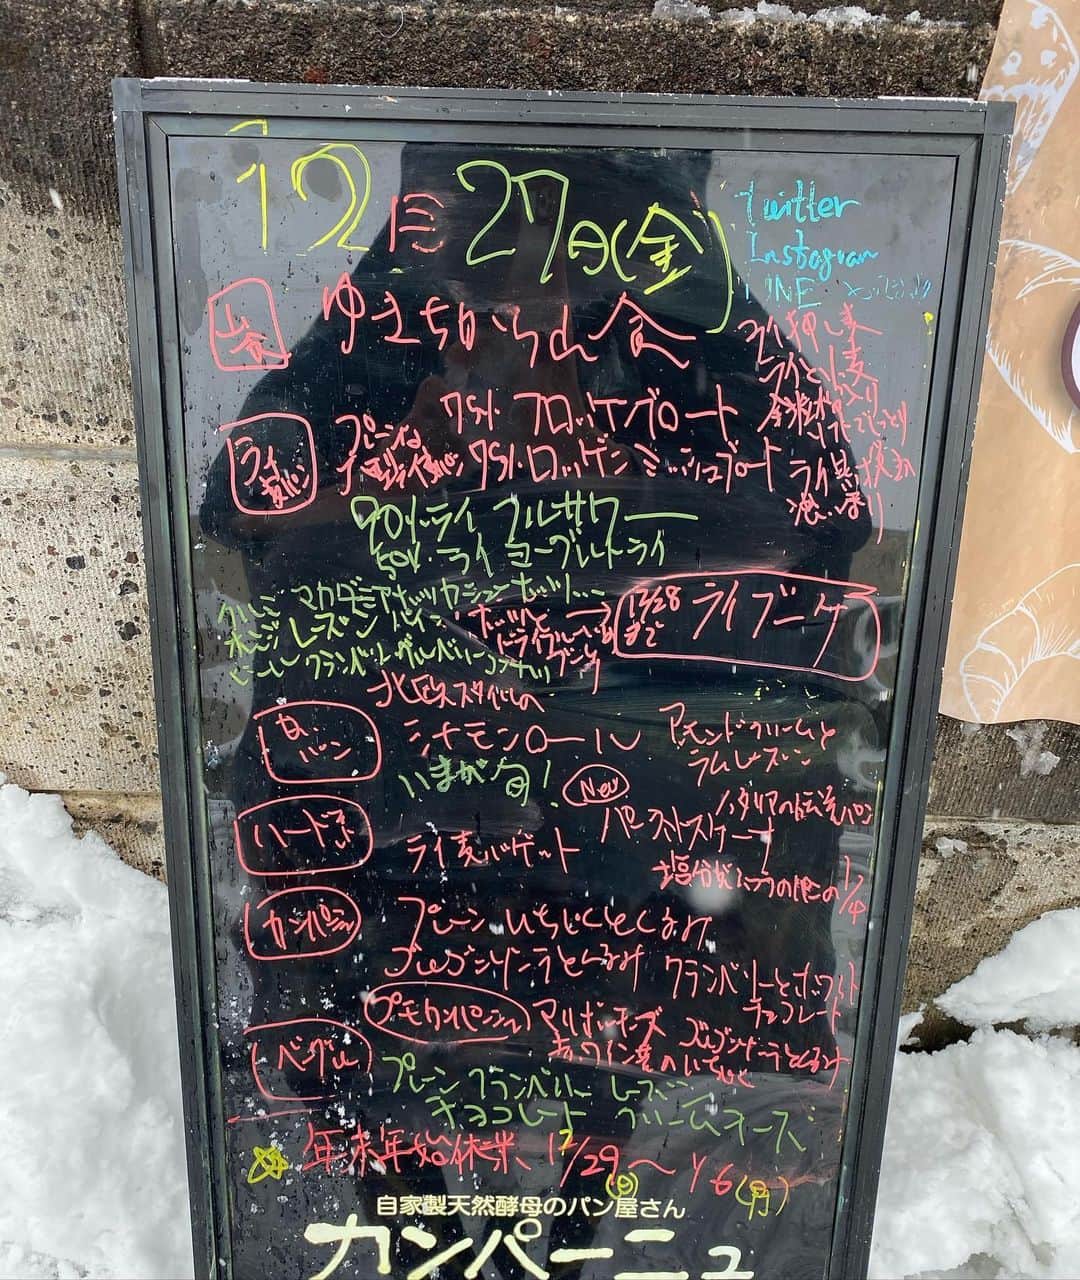 12月27日(金)
Twitter
Instagram
LINE
山食
ゆきちからさん食
ライ麦パン
プレーンな
75% フロッケンブロート
75% ロッゲンミッシュブロート
ライ押し麦
90%ライ フルサワー
50%ライ ヨーグルトライ
クルミ マカダミアナッツ カシューナッツ
レーズン パイン
クランベリー グリーンレーズン
ナッツと
ドライフルーツ
12/28
まで
ライブニケ
北欧スタイルの
シナモンロール
いまが旬!
アーモンドクリームと
ラムレーズン
白パン
New
イタリアの伝達パン
ハード系
ライ麦バゲット
塩分
1/4
カンパーニュ
プレーン いちじくとくるみ
ゴルゴンゾーラとくるみ
クランベリーとホワイト
チョコレート
プチカンパーニュ
マリボーチーズ ゴルゴンゾーラとくるみ
赤ワイン煮のいちじく
ベーグル
プレーン クランベリー レーズン
チョコレート クリームチーズ
年末年始休業 12/29(日)〜1/6(月)
自家製天然酵母のパン屋さん
カンパーニュ